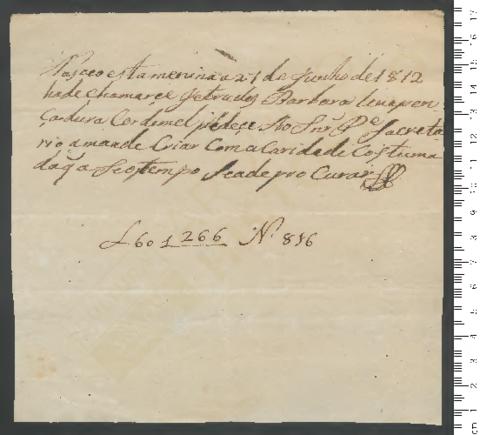 Nasceo esta menina a 21 de Junho de 1812
hade chamarçe Getrudes Barbora linapren
Ça dura Cor de mel pedeçe Ao Snr Pe Sacreta
rio a mande Criar Com a Caridade Costuma
da q a Seo tempo Seade pro Curar
L 60 1 266 N. 816
cm 1 2 3 4 5 6 7 8 9 10 11 12 13 14 15 16 17